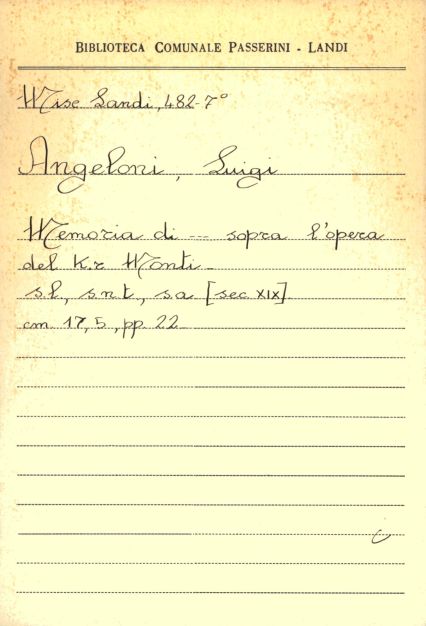 BIBLIOTECA COMUNALE PASSERINI - LANDI
Misc Landi, 482-7°
Angeloni, Luigi
Memoria di --- sopra l'opera
del K.r Monti -
s.l., s.n.t., s.a. [sec. XIX].
cm. 17,5, pp. 22
c